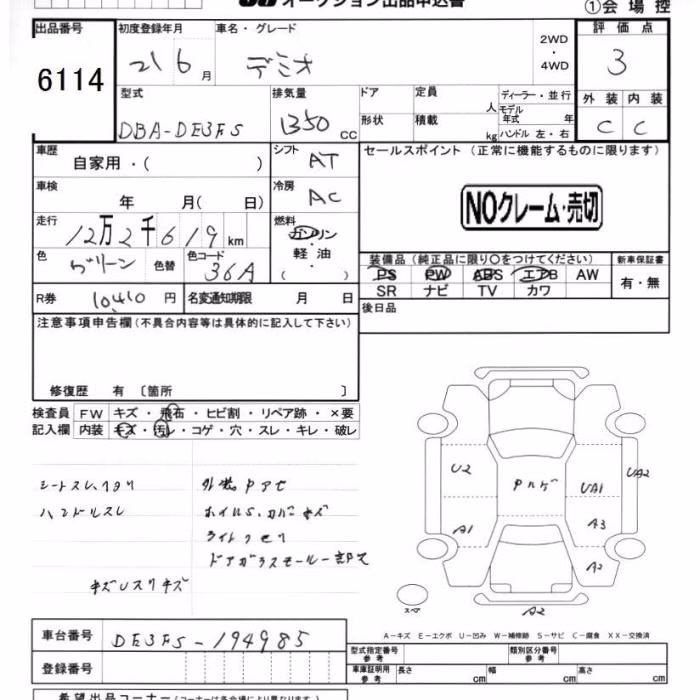 オークション出品申込書
①会場控
出品番号 初度登録年月 車名・グレード 評価点
6114 21 6月 デミオ 2WD・4WD 3
型式 排気量 ドア 定員 人 ディーラー・並行 外装 内装
DBA-DE3FS 1350 cc 形状 積載 kg モデル年式 年 ハンドル 左・右 C C
車歴 自家用・( ) シフト AT セールスポイント (正常に機能するものに限ります)
車検 年 月( 日) 冷房 AC
NOクレーム・売切
走行 12万2千619km 燃料 ガソリン
軽油
( )
色 グリーン 色替 色コード 36A
装備品 (純正品に限り○をつけてください) 新車保証書
PS PW ABS エアB AW 有・無
SR ナビ TV カワ
R券 10410円 名変通知期限 月 日
後日品
注意事項申告欄(不具合内容等は具体的に記入して下さい)
修復歴 有 〔箇所 〕
検査員 FW キズ・飛石・ヒビ割・リペア跡・×要
記入欄 内装 キズ・汚レ・コゲ・穴・スレ・キレ・破レ
シートスレ、
ハンドルスレ
外装
ホイルS、カバーキズ
ライトクモリ
ドアガラスモール一部欠
U2 UA1 UA2
A1 A3
A2
スペア A2
A-キズ E-エクボ U-凹み W-補修跡 S-サビ C-腐食 XX-交換済
車台番号 DE3FS-194985
登録番号
型式指定番号 参考 類別区分番号 参考
車庫証明用 参考 長さ cm 幅 cm 高さ cm
希望出品コーナー(コーナーは各会場により異なります)